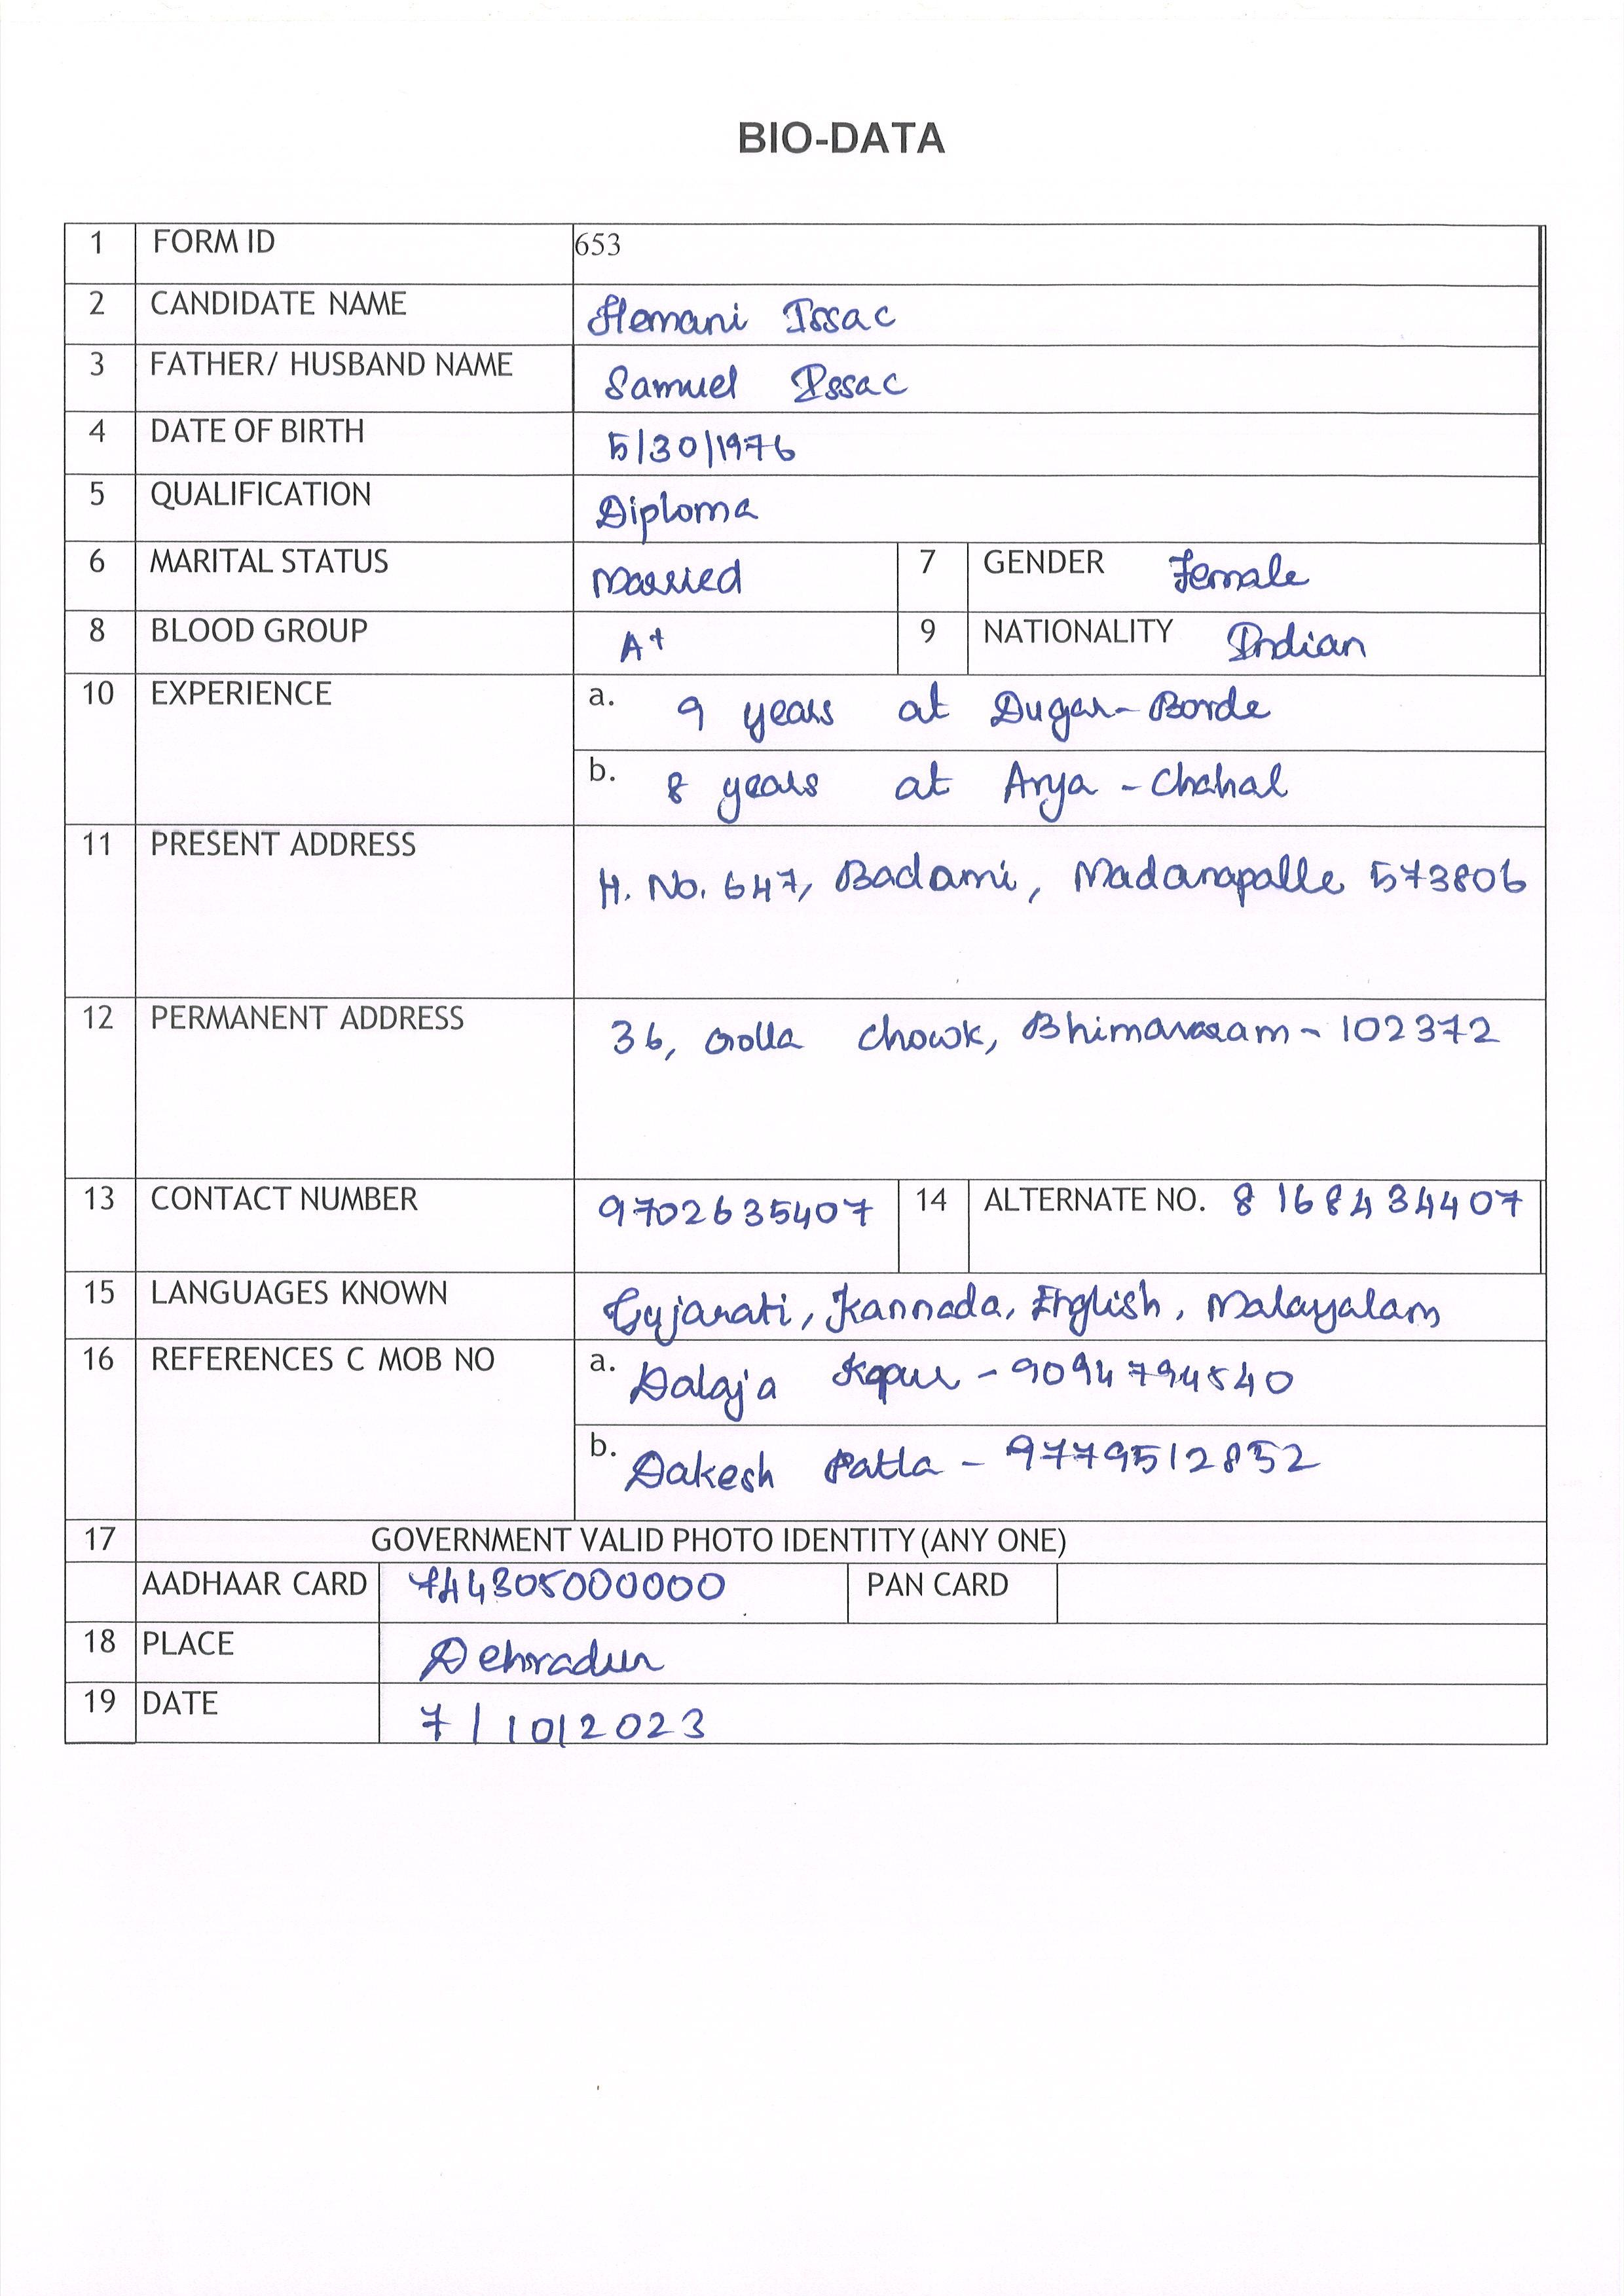 BIO-DATA
1 FORM ID 653
2 CANDIDATE NAME Hemani Issac
3 FATHER/ HUSBAND NAME Samuel Issac
4 DATE OF BIRTH 5/30/1976
5 QUALIFICATION Diploma
6 MARITAL STATUS Married 7 GENDER Female
8 BLOOD GROUP A+ 9 NATIONALITY Indian
10 EXPERIENCE a. 9 years at Dugar-Borde
b. 8 years at Arya - Chahal
11 PRESENT ADDRESS H. No. 647, Badami, Madanapalle 573806
12 PERMANENT ADDRESS 36, Golla Chowk, Bhimavaram - 102372
13 CONTACT NUMBER 9702635407 14 ALTERNATE NO. 8168434407
15 LANGUAGES KNOWN Gujarati, Kannada, English, Malayalam
16 REFERENCES C MOB NO a. Dalaja Kapur - 9094794540
b. Dakesh Patla - 9779512852
17 GOVERNMENT VALID PHOTO IDENTITY (ANY ONE)
AADHAAR CARD 744305000000 PAN CARD
18 PLACE Dehradun
19 DATE 7/10/2023